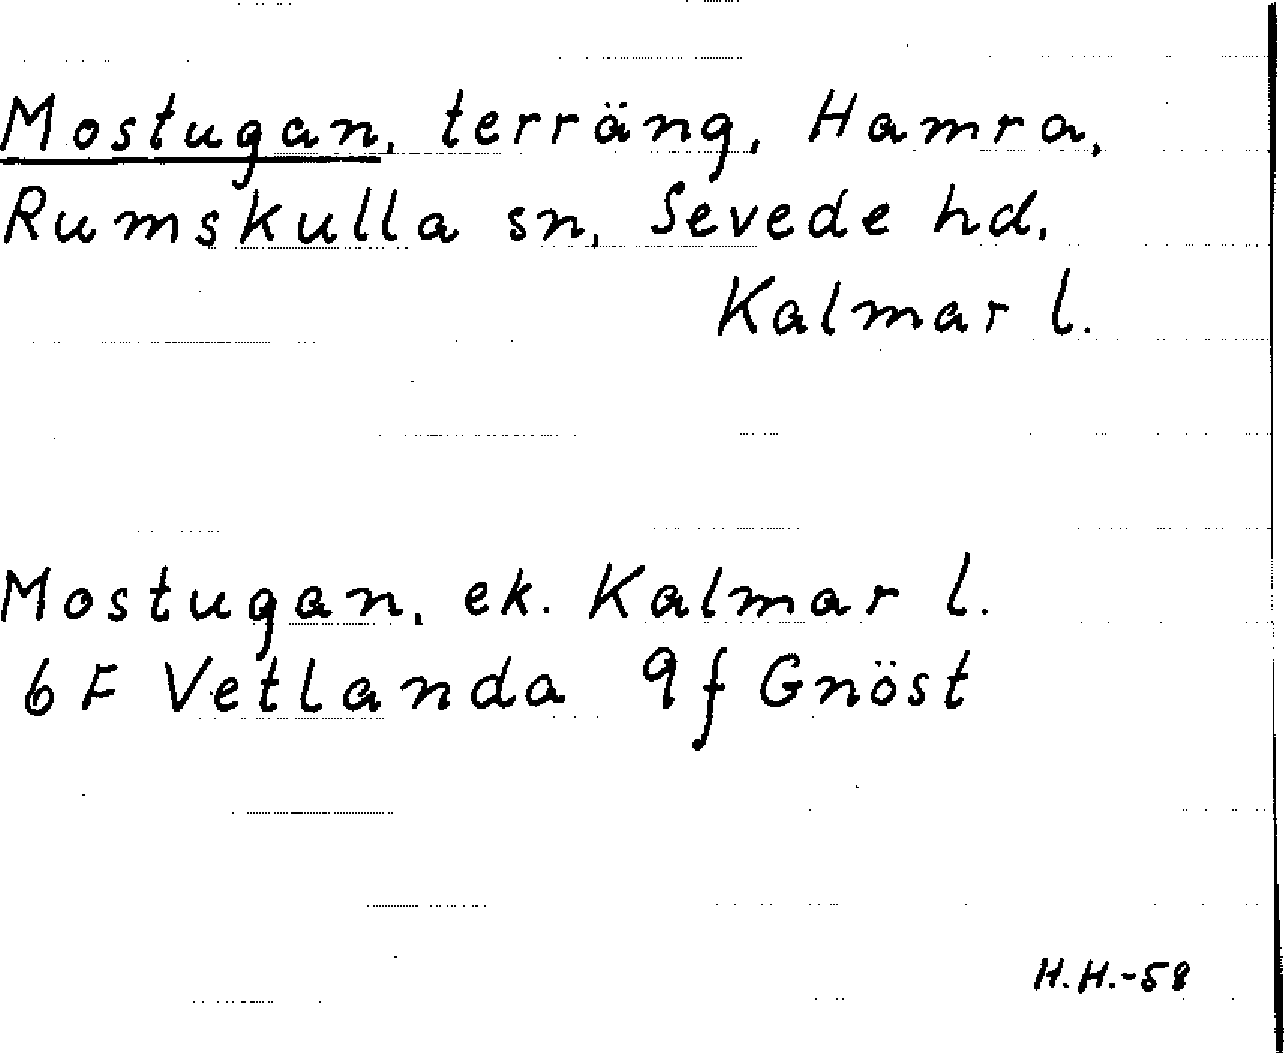 Mostugan, terräng, Hamra,
Rumskulla sn, Sevede hd,
Kalmar l.
Mostugan, ek. Kalmar l.
6 F Vetlanda 9f Gnöst
H.H.-58